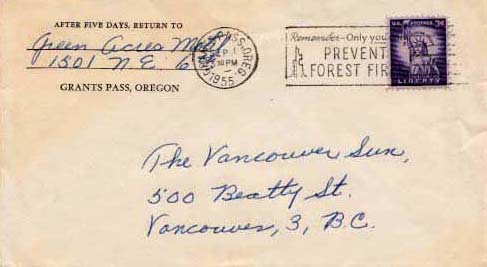 AFTER FIVE DAYS, RETURN TO
Green Acres Motel
1501 N.E. 6th
GRANTS PASS, OREGON
GRANTS PASS, OREG.
SEP 1
PM
1955
Remember-Only you
PREVENT
FOREST FIR
U.S. POSTAGE 3¢
LIBERTY
The Vancouver Sun,
500 Beatty St.
Vancouver, 3, B.C.